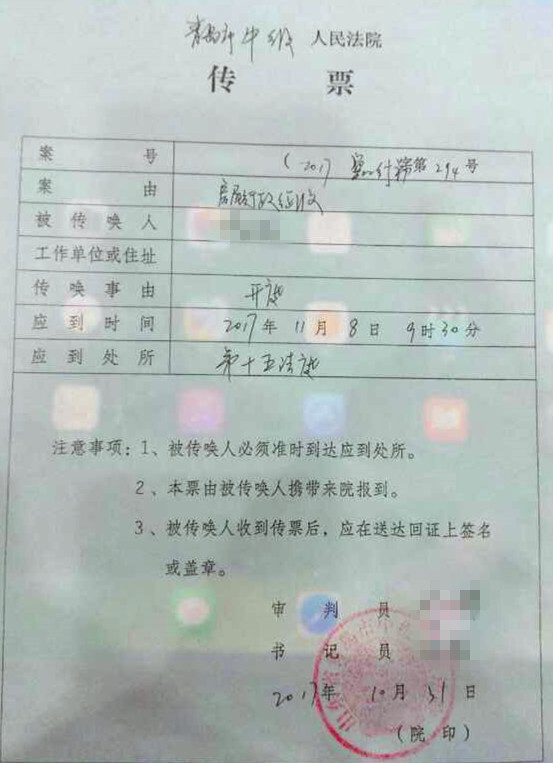 青岛市中级 人民法院
传 票
案 号 （2017 第294号
案 由 房屋行政征收
被传唤人
工作单位或住址
传唤事由 开庭
应到时间 2017年11月8日 9时30分
应到处所 第十五法庭
注意事项：1、被传唤人必须准时到达应到处所。
2、本票由被传唤人携带来院报到。
3、被传唤人收到传票后，应在送达回证上签名
或盖章。
审 判 员
书 记 员
2017年 10月 31日
（院 印）